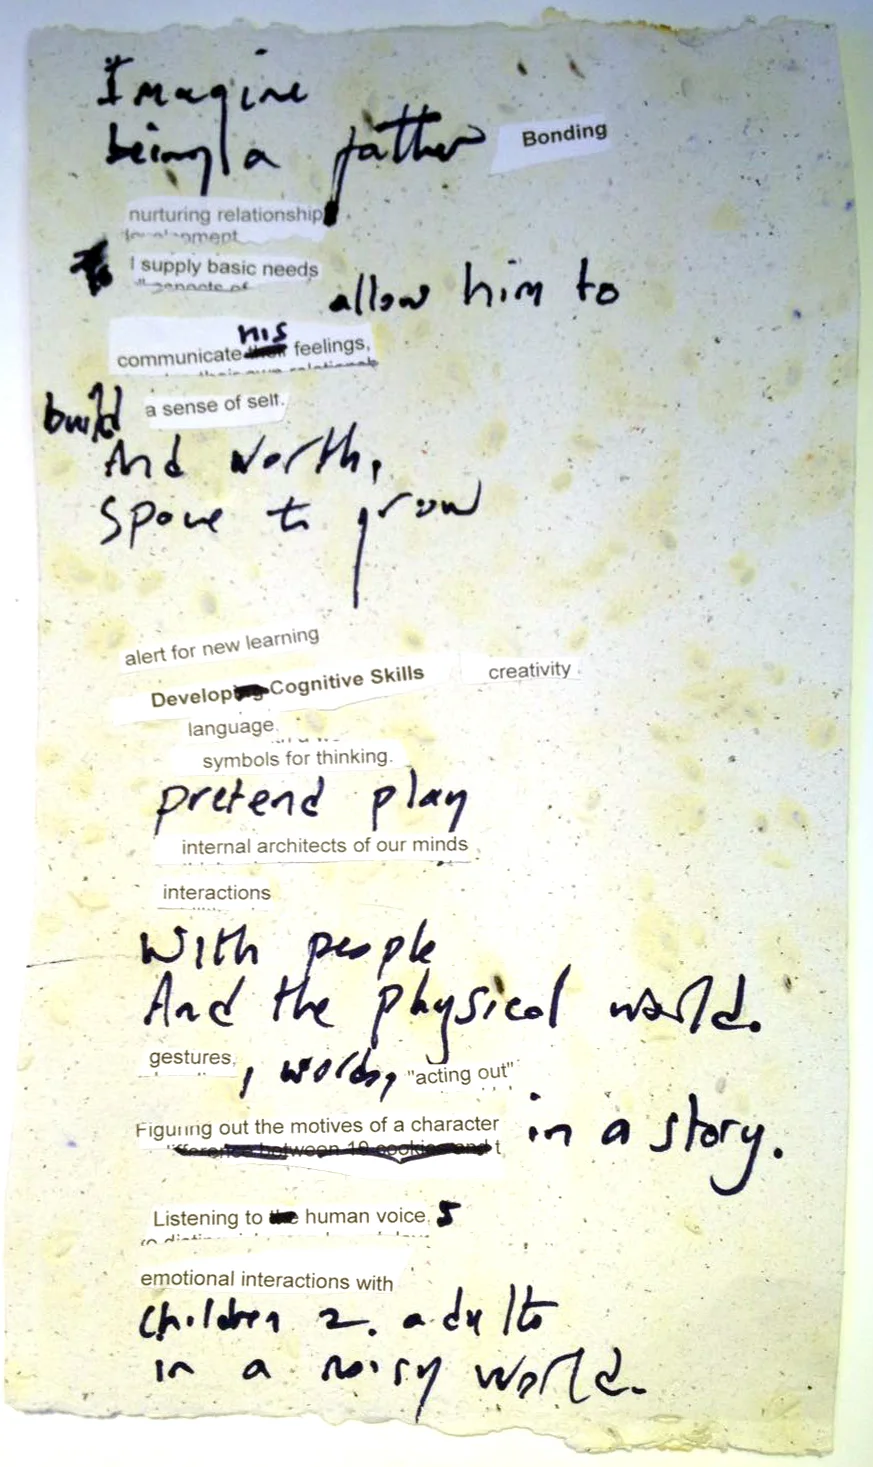 Imagine
being a father Bonding
nurturing relationship.
I supply basic needs
allow him to
his
communicate feelings,
build a sense of self.
And worth,
Space to grow
alert for new learning
Develop Cognitive Skills creativity
language.
symbols for thinking.
pretend play
internal architects of our minds
interactions
With people
And the physical world.
gestures, , words, "acting out"
Figuring out the motives of a character in a story.
Listening to human voice.s
emotional interactions with
children 2. adults
in a noisy world.